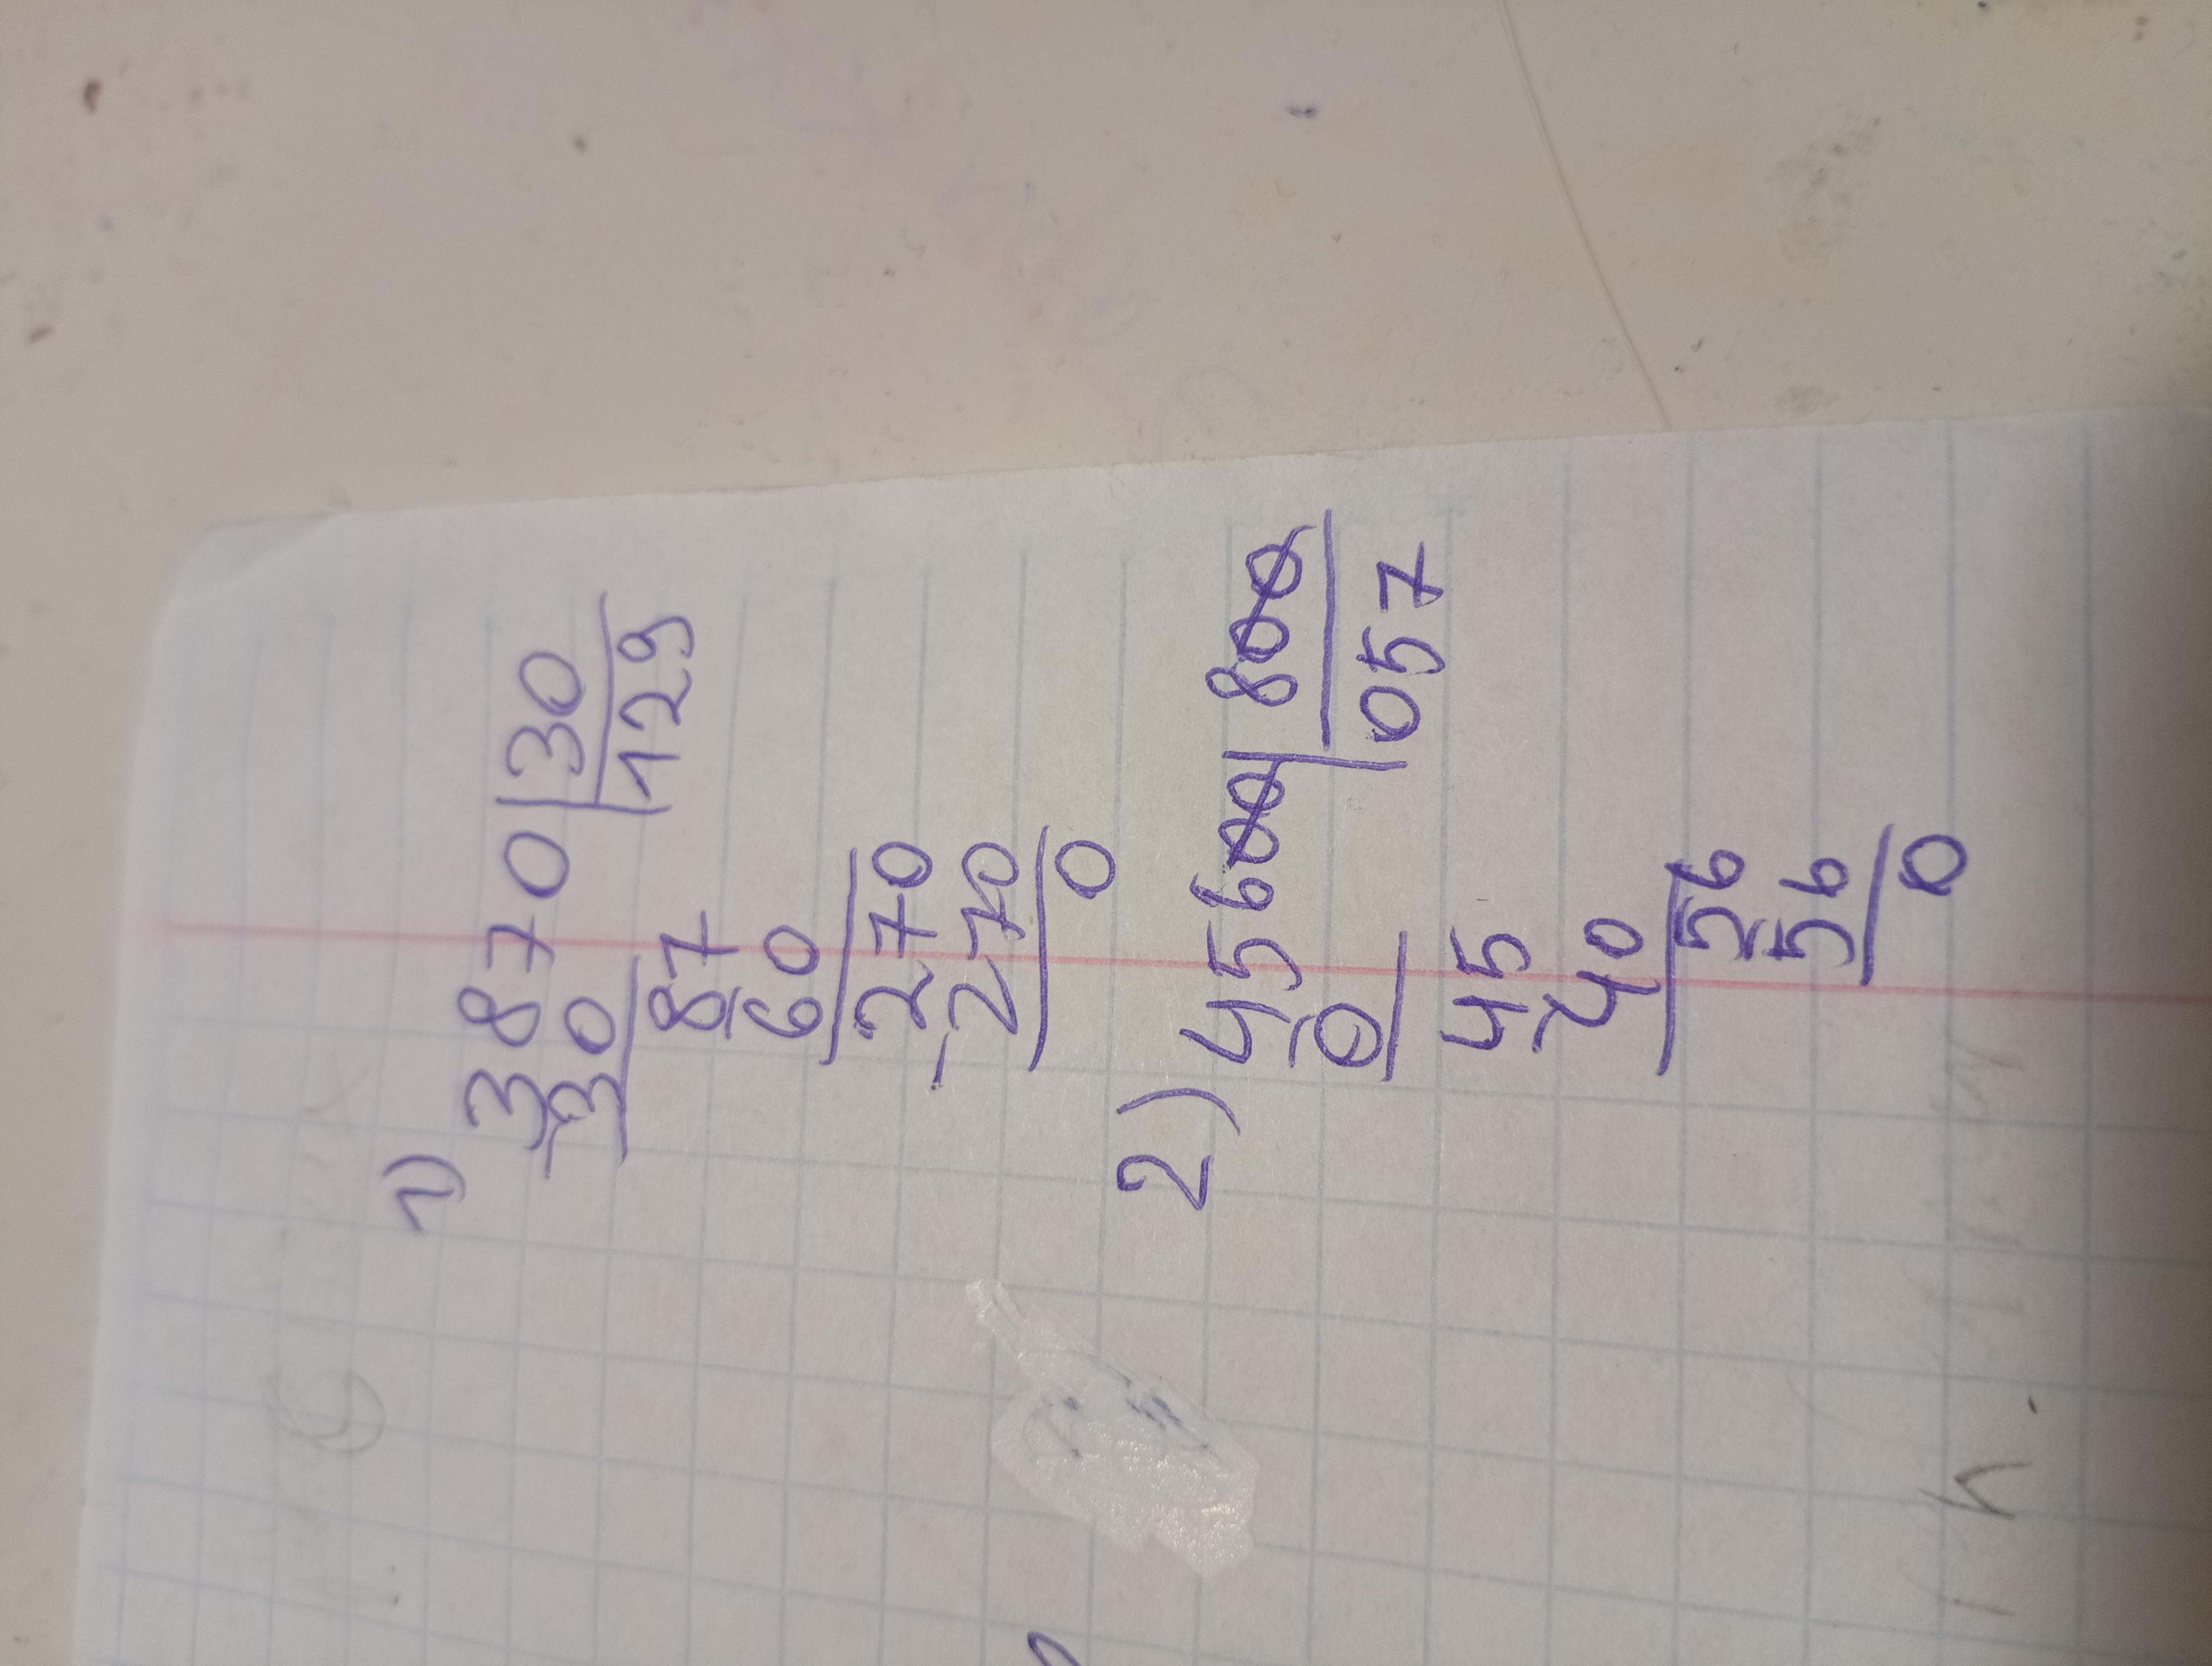 1)
3870|30
-30 129
87
-60
270
-270
0
2) 45600|800
-0 057
45
-40
56
-56
0